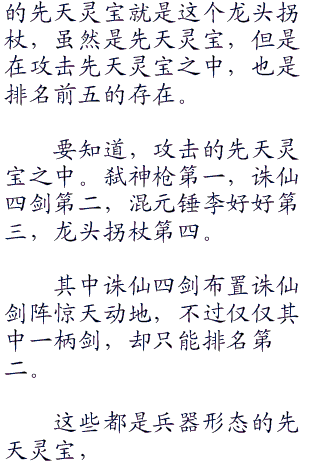 的先天灵宝就是这个龙头拐
杖，虽然是先天灵宝，但是
在攻击先天灵宝之中，也是
排名前五的存在。
要知道，攻击的先天灵
宝之中。弑神枪第一，诛仙
四剑第二，混元锤李好好第
三，龙头拐杖第四。
其中诛仙四剑布置诛仙
剑阵惊天动地，不过仅仅其
中一柄剑，却只能排名第
二。
这些都是兵器形态的先
天灵宝，